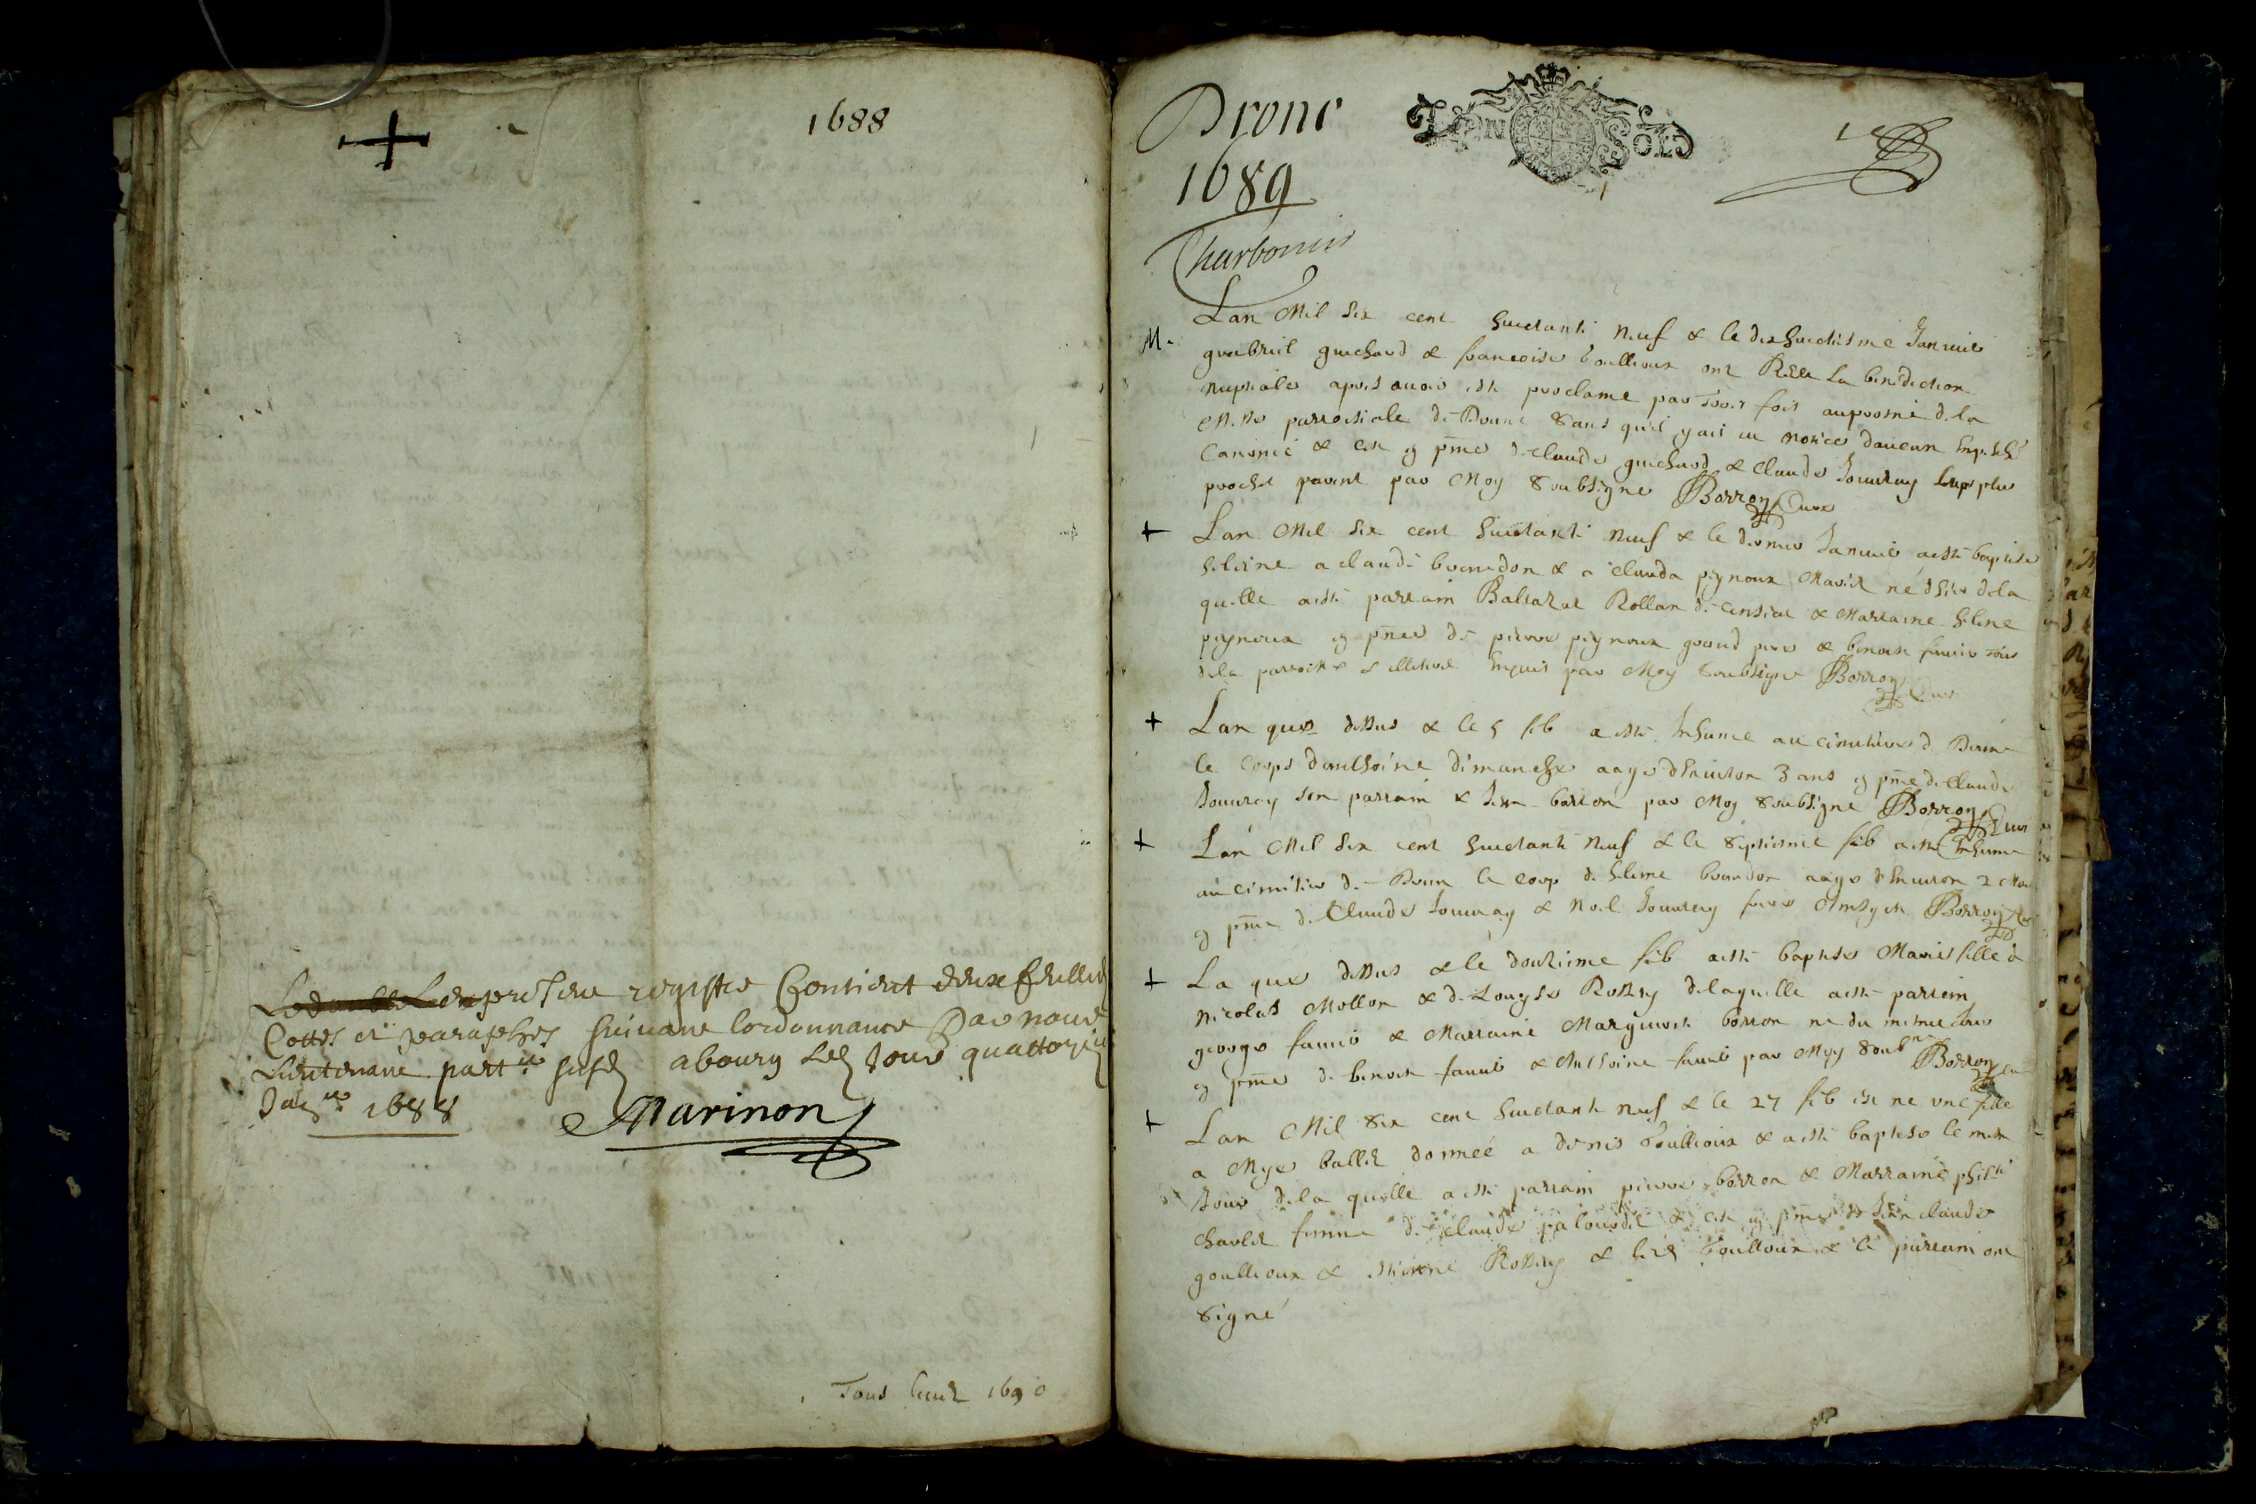 1688
Le double Le present registre Contient deux feuillets
Cottés et paraphés suivant lordonnance Par nous
Lieutenant part.er susd abourg Les Jour quattorzie
Janr 1688
Marinon
Tous huict 1690
Drom
1689
Charbonnier
DEN SOLS
M.
Lan Mil six cent huictante neuf & le dixhuictiesme Janvier
guabriel guichard & francoise boullioux ont Receu La benediction
nuptiale apres avoir esté proclame par Trois fois auprosne de la
Messe parrochiale de Droume Sans quil y ait eu notice daucun Empesche
Canonic & ce en pnce de claude guichard & claude Jouvray Leurs plus
proches parent par Moy Soubsigné Borron Curé
Lan Mil six cent huictante neuf & le dernier Janvier a esté baptisée
helene a claude bourndon & a clauda peynoux Mariés né dhier de la
quelle a esté parrain Baltazat Rollan de & Marraine helene
peynoux en pnce de pierre peynoux grand pere & benoist favier tous
de la parroisse illeterés Enquis par Moy Soubsigné Borron Curé
Lan que dessus & le 5 feb a esté Inhume au cimetiere de Drome
le Corps danthoine dimanche aagé denviron 3 ans en pnce de Claude
Jouvray son parrain & Jean borron par Moy Soubsigné Borron Curé
Lan Mil six cent huictante neuf & le septiesme feb a esté Inhume
au cimetier de Drom le corp de helene bourndon aagé denviron 2 Mois
en pnce de Claude Jouvray & Noel Jouvray Borron
La que dessus & le douzieme feb a esté baptisée Marie fille à
nicolas Mollon & de Louyse Rossey delaquelle a esté parrein
george favier & Marraine Margueritte borron ne du mesme Jour
en pnce de benoist favier & Anthoine favier par Moy Soubne Borron
Lan Mil Six cent huictante neuf & le 27 feb est né une fille
a Mye ballet donnée a denis goullioux & a esté baptisée le mesme
Jour de la quelle a esté parrain pierre borron & Marraine
femme de claude palourdet & ce en pnce de Jean claude
goullioux & estienne Rossey & goullioux & le parrain ont
Signé